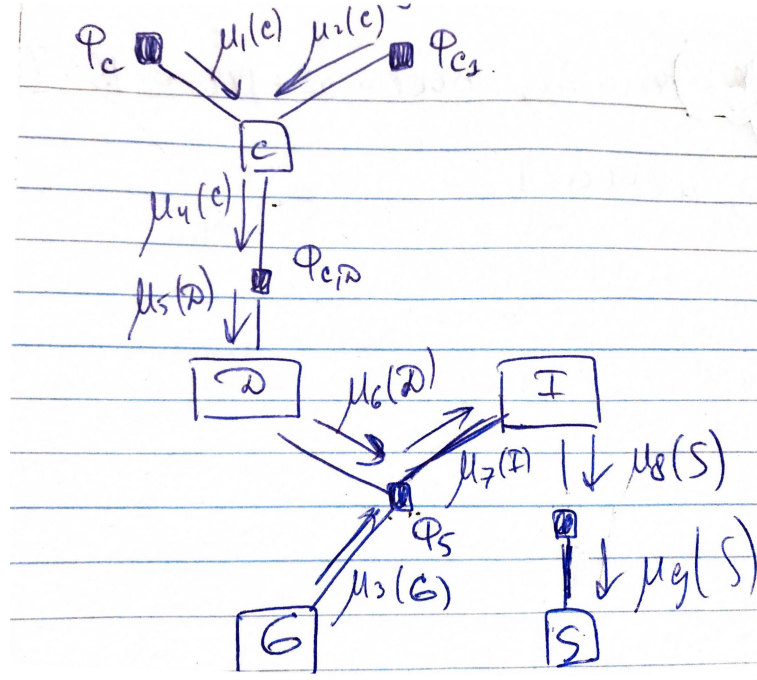 φ_C μ₁(C) μ₂(C) φ_C1
C
μ₄(C)
φ_C,D
μ₅(D)
D I
μ₆(D)
μ₇(I) μ₈(S)
φ_S
μ₃(G) μ₉(S)
G S